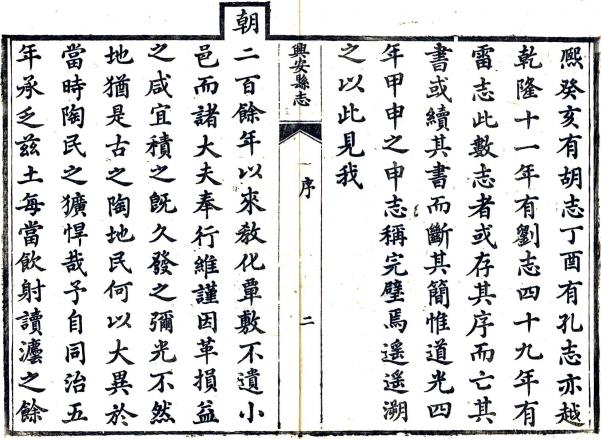 熙癸亥有胡志丁酉有孔志亦越
乾隆十一年有劉志四十九年有
雷志此數志者或存其序而亡其
書或續其書而斷其簡惟道光四
年甲申之申志稱完璧焉遥遥溯
之以此見我
興安縣志
序
二
朝二百餘年以來敎化覃敷不遺小
邑而諸大夫奉行維謹因革損益
之咸宜積之旣久發之彌光不然
地猶是古之陶地民何以大異於
當時陶民之獷悍哉予自同治五
年承乏兹土每當飲射讀灋之餘